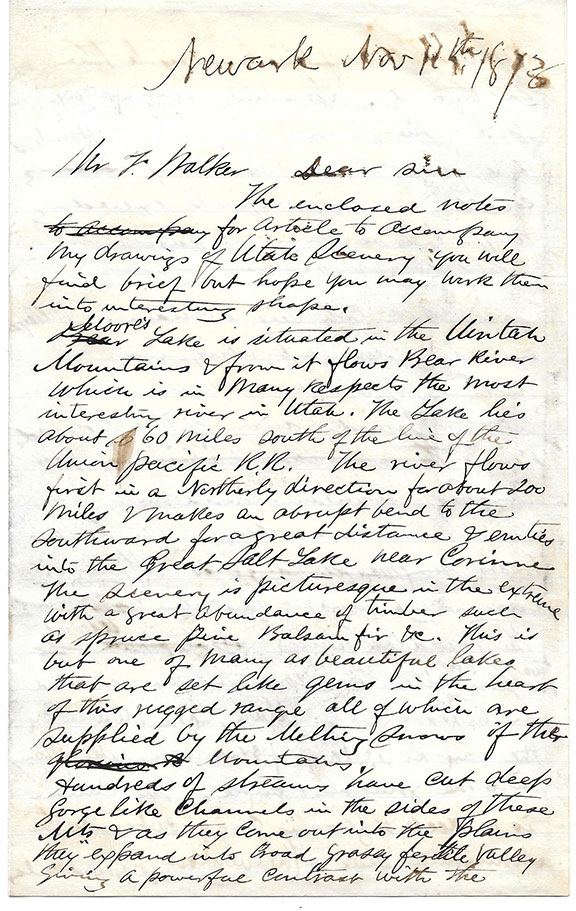 Newark Nov 11th 1873
Mr F. Walker Dear sir
The enclosed notes
to accompany for Article to accompany
my drawings of Utah Scenery you will
find brief but hope you may work them
into interesting shape.
Moore's
Bear Lake is situated in the Uintah
Mountains & from it flows Bear River
which is in many respects the most
interesting river in Utah. The Lake lies
about 60 miles south of the line of the
Union pacific R.R. The river flows
first in a Northerly direction for about 200
miles & makes an abrupt bend to the
southward for a great distance & empties
into the Great Salt Lake near Corinne
The scenery is picturesque in the extreme
with a great abundance of timber such
as spruce Pine Balsam fir &c. This is
but one of many as beautiful lakes
that are set like gems in the heart
of this rugged range all of which are
supplied by the Melting snows of the
Mountains.
Hundreds of streams have cut deep
Gorge like Channels in the sides of these
Mts & as they come out into the plains
they expand into broad grassy fertile valley
Giving a powerful contrast with the